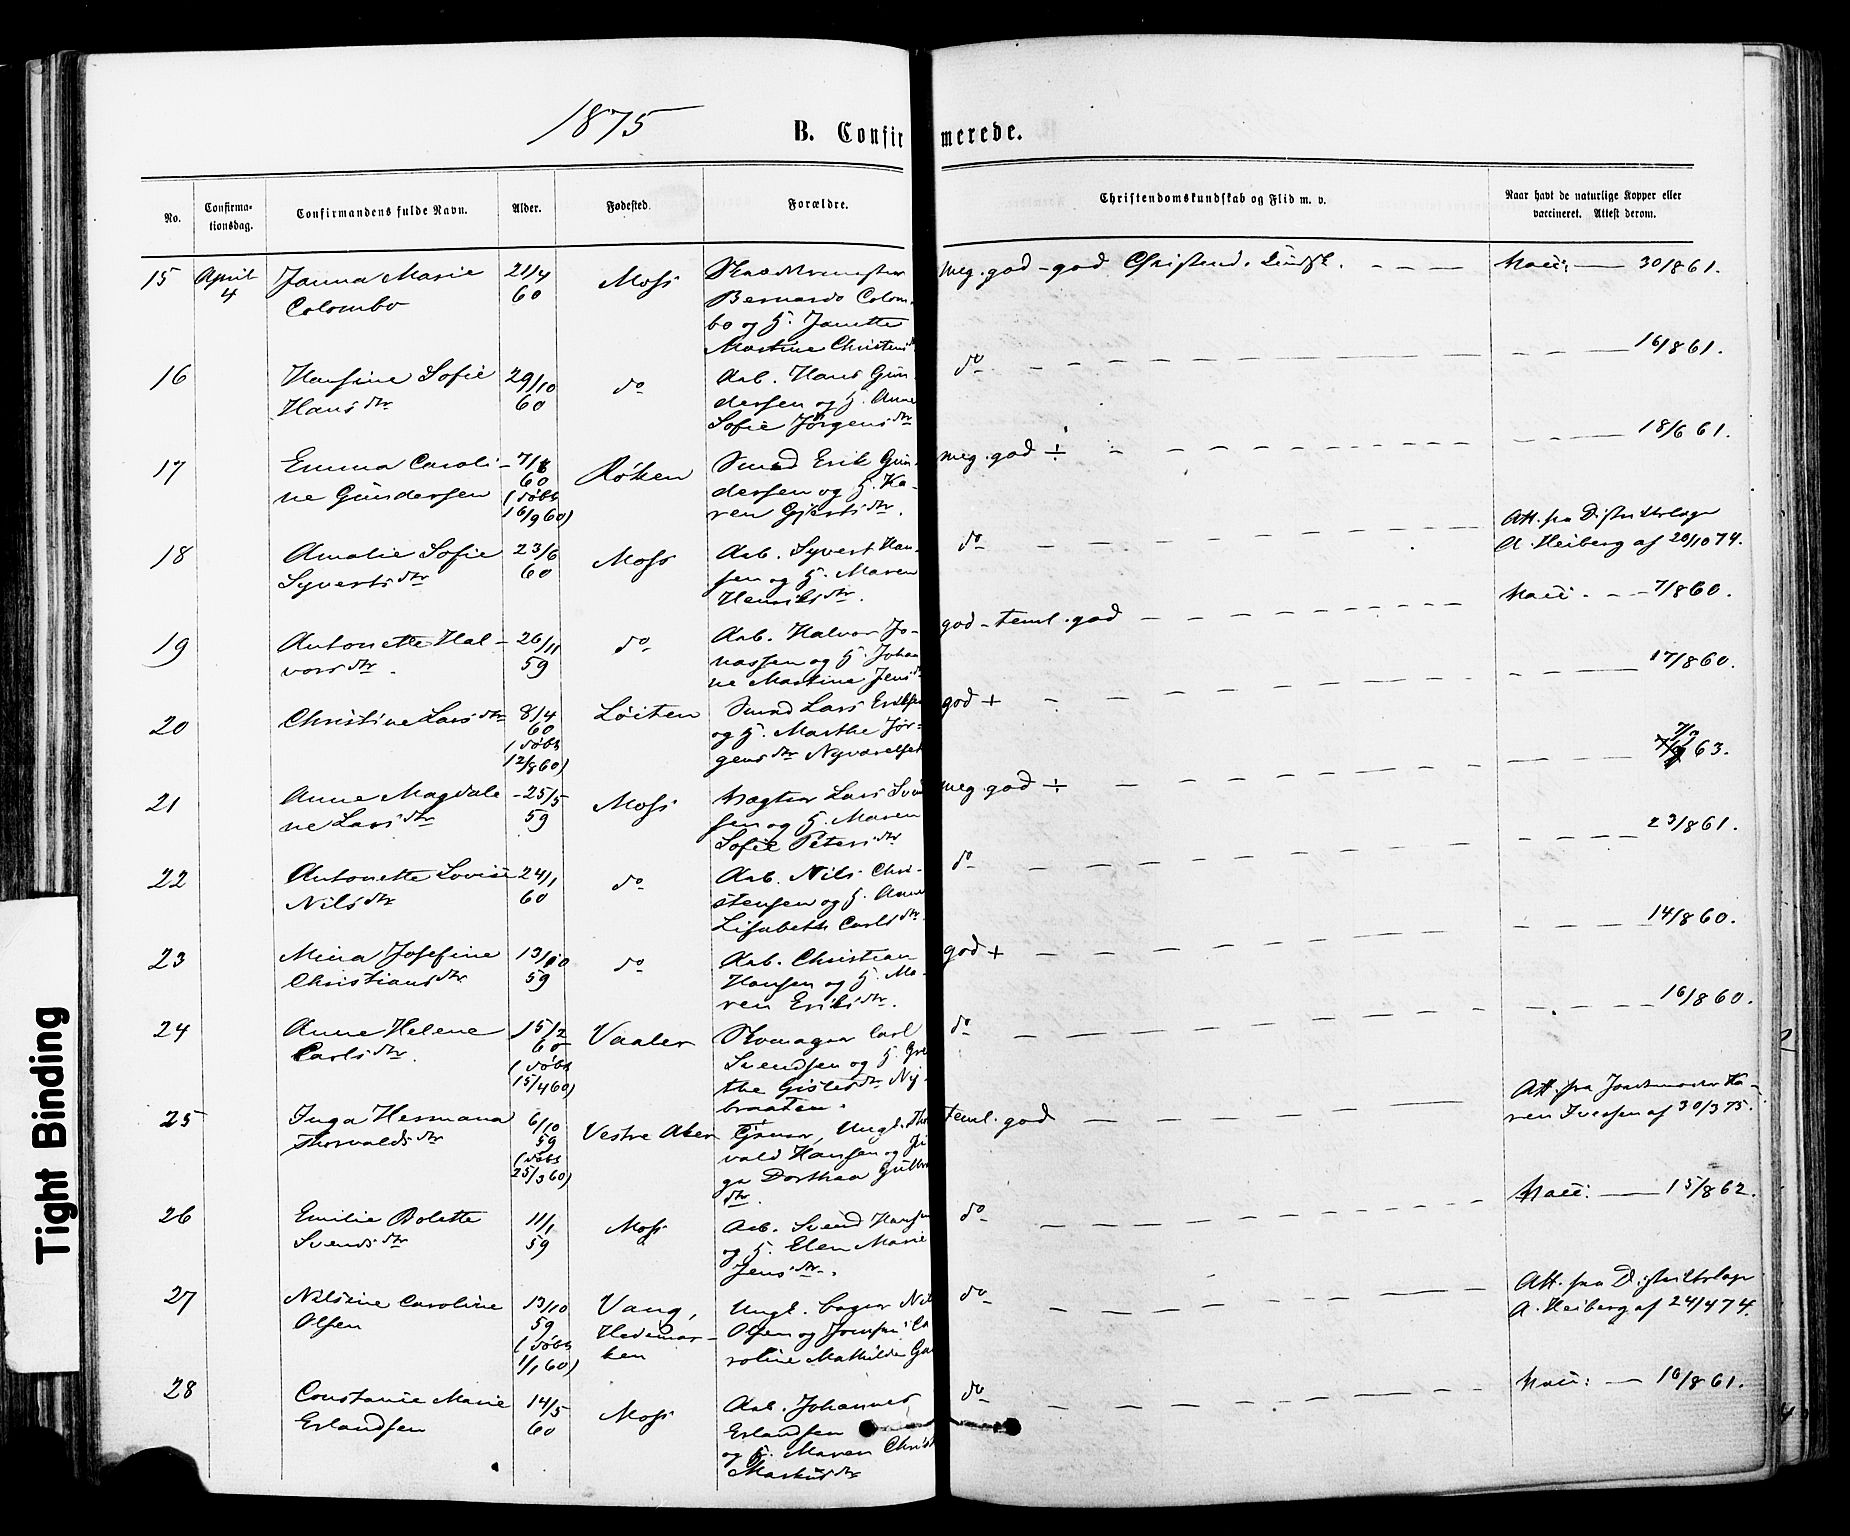 1875
B. Confirmerede.
No.
Confirma-
tionsdag.
Confirmandens fulde Navn.
Alder.
Fødested.
Forældre.
Christendomskundskab og Flid m. v.
Naar havt de naturlige Kopper eller
vaccineret. Attest derom.
15
April
4
Janna Marie
Colombo
21/4
60
Moss
Bernardo Colom-
bo og H. Janette
Martine Christens
meg. god - god Christend. Kundsk.
Vacc: 30/8 61.
16
Hansine Sofie
Hansdtr
29/10
60
do
Arb. Hans Gun-
dersen og H. Anne
Sofie Jørgensdtr
do
16/8 61.
17
Emma Caroli-
ne Gundersen
7/8
60
(døbt
16/9 60)
Røken
Smed Erik Gun-
dersen og H. Ka-
ren Gjertsdtr.
meg. god ÷
18/6 61.
18
Amalie Sofie
Syvertsdtr
23/6
60
Moss
Arb. Syvert Han-
sen og H. Maren
Henriksdtr.
do
Att. fra Distriktslæge
A. Heiberg af 20/10 74.
19
Antonette Hal-
vorsdtr.
26/11
59
do
Arb. Halvor Jo-
nassen og H. Johan
ne Martine Jensd
god - teml. god
Vacc. 7/8 60.
20
Christine Larsdtr
8/4
60
(døbt
12/8 60)
Løiten
Smed Lars Eriksen
og H. Marthe Jør-
gensdtr Nyværelset
god +
17/8 60.
21
Anne Magdale-
ne Larsdtr
25/5
59
Moss
Vægter Lars Sven
sen og H. Maren
Sofie Petersdtr
meg. god ÷
7/9 63.
22
Antonette Lovise
Nilsdtr
24/1
60
do
Arb. Nils Chri-
stensen og H. Anne
Lisabeth Carlsdtr.
do
23/8 61.
23
Mina Josefine
Christiansdtr
13/10
59
do
Arb. Christian
Hansen og H. Ma-
ren Eriksdtr.
god +
14/8 60.
24
Anne Helene
Carlsdtr.
15/2
60
(døbt
15/4 60)
Vaaler
Skomager Carl
Svendsen og H. Gre
the Gislesdtr Ny-
braaten.
do
16/8 60.
25
Inga Hermana
Thorvaldsdtr
6/10
59
(døbt
25/3 60)
Vestre Aker
Tjener, Ungk. Thor
vald Hansen og
Dorthea Gulbr
dtr.
teml. god
Att. fra Jordmoder Ka-
ren Iversen af 30/3 75.
26
Emilie Bolette
Svendsdtr
11/1
59
Moss
Arb. Svend Hansen
og H. Elen Marie
Jensdtr.
do
Vacc: 15/8 62.
27
Nilsine Caroline
Olsen
13/10
59
(døbt
1/1 60)
Vang,
Hedemar-
ken
Ungk. bager Nils
Olsen og Jomfru Ca
roline Mathilde
do
Att. fra Distriktslæge
A. Heiberg af 24/4 74.
28
Constanse Marie
Erlandsen
14/5
60
Moss
Arb. Johannes
Erlandsen
og H. Maren Christ
Markusdtr
do
Vacc: 16/8 61.
Tight Binding